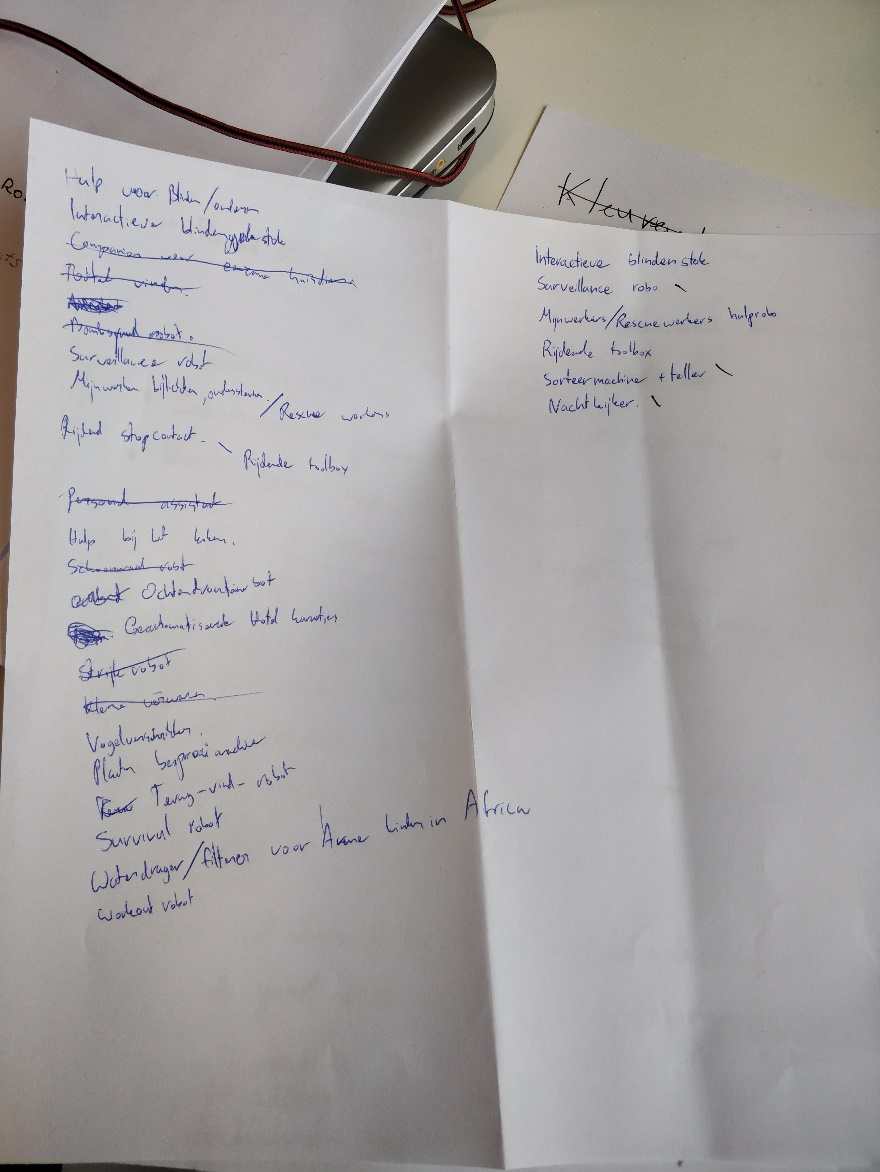 Hulp voor Blinden/ouderen
Interactieve blindengeleidestok
Companion voor eenzame huisdieren
Surveillance robot
Mijnwerkers bijlichten, ondersteunen. /Rescue workers
Rijdend stopcontact.
Rijdende toolbox
Personal assistant
Hulp bij het koken.
robot Ochtendroutine bot
Geautomatiseerde Hotel karretjes
Strijk robot
Kleine
Vogelverschrikker.
Plant besproeimachine
Terug-vind-robot
Survival robot
Waterdrager/filteren voor Arme landen in Africa
Workout robot
Kleuren
Interactieve blinden stok
Surveillance robo
Mijnwerkers/Rescue workers hulprobo
Rijdende toolbox
Sorteermachine + teller
Nachtkijker.